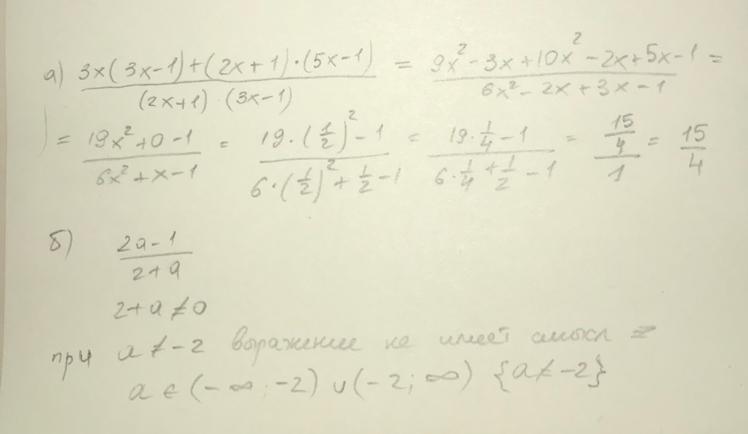 а) (3x(3x-1)+(2x+1)·(5x-1))/((2x+1)·(3x-1)) = (9x²-3x+10x²-2x+5x-1)/(6x²-2x+3x-1) =
= (19x²+0-1)/(6x²+x-1) = (19·(1/2)²-1)/(6·(1/2)²+1/2-1) = (19·1/4-1)/(6·1/4+1/2-1) = (15/4)/1 = 15/4
б) (2a-1)/(2+a)
2+a≠0
при a≠-2 выражение не имеет смысл
a ∈ (-∞;-2) ∪ (-2;∞) {a≠-2}